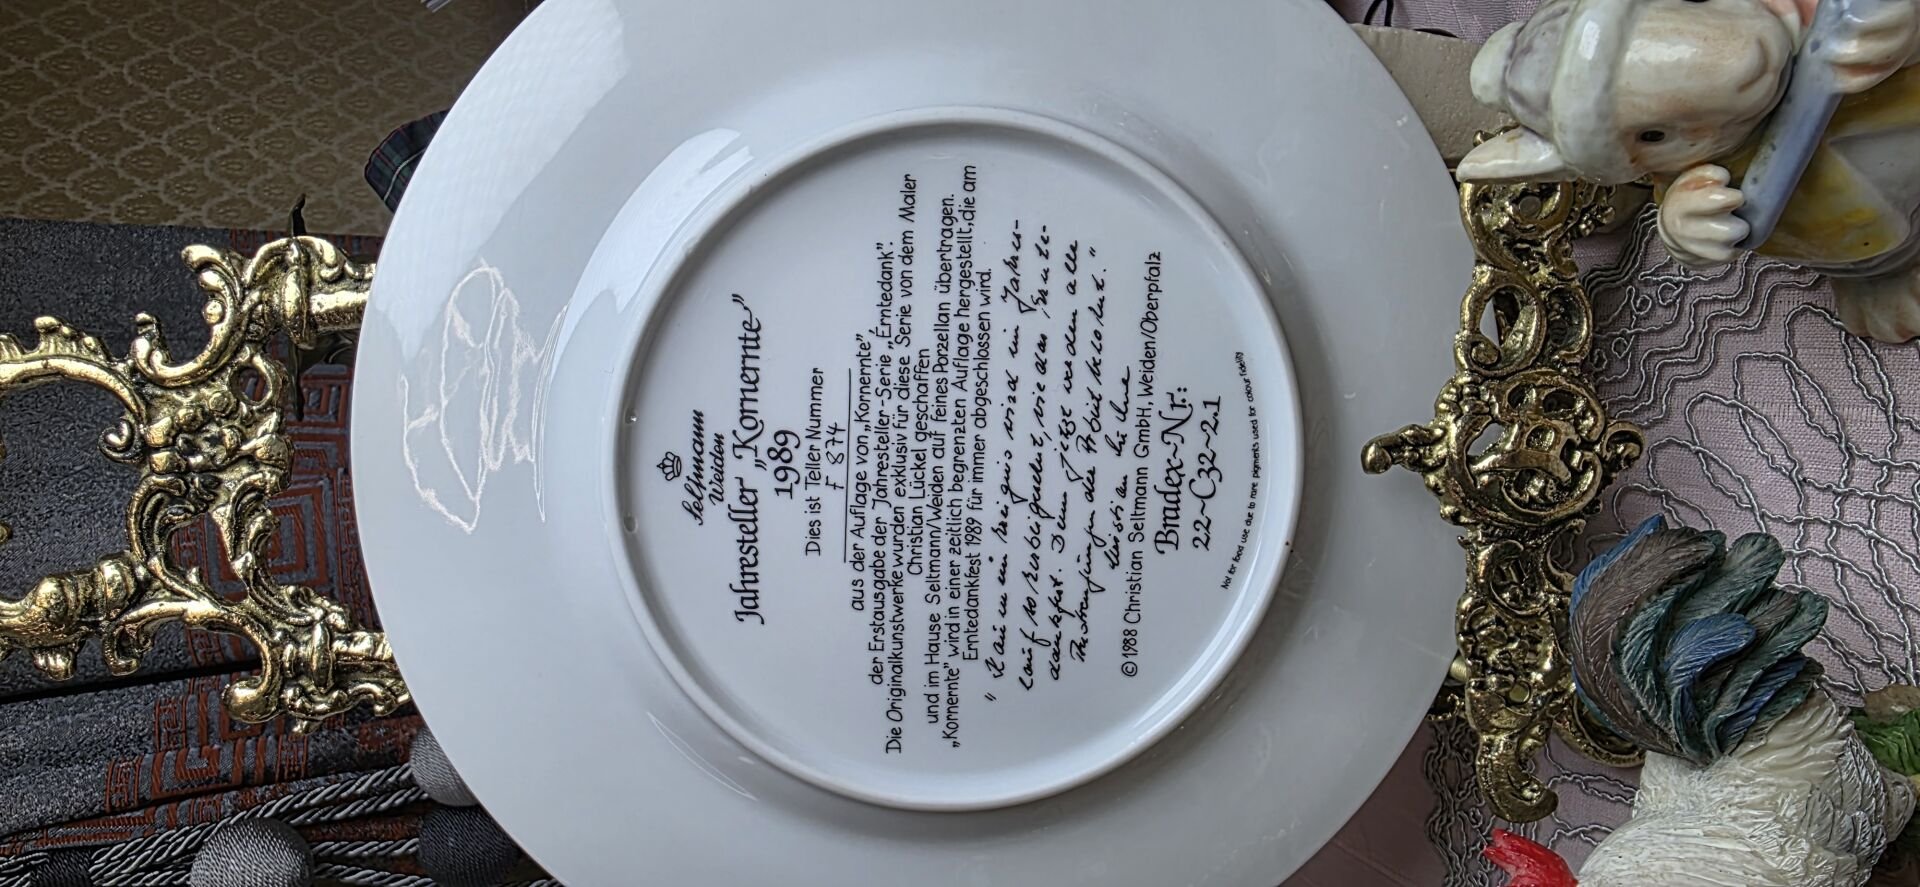 Seltmann
Weiden
Jahresteller „Kornernte”
1989
Dies ist Teller Nummer
F 874
aus der Auflage von „Kornernte”,
der Erstausgabe der Jahresteller-Serie „Erntedank”.
Die Originalkunstwerke wurden exklusiv für diese Serie von dem Maler
Christian Lückel geschaffen
und im Hause Seltmann/Weiden auf feines Porzellan übertragen.
„Kornernte” wird in einer zeitlich begrenzten Auflage hergestellt, die am
Erntedankfest 1989 für immer abgeschlossen wird.
„Kaum ein Ereignis wird im Jahres-
lauf so herbeigesehnt, wie das Ernte-
dankfest. Denn jetzt werden alle
Anstrengungen der Arbeit belohnt.“
Christian Lückel
©1988 Christian Seltmann GmbH, Weiden/Oberpfalz
Bradex~Nr.:
22~C32~2.1
Not for food use due to rare pigments used for colour fidelity